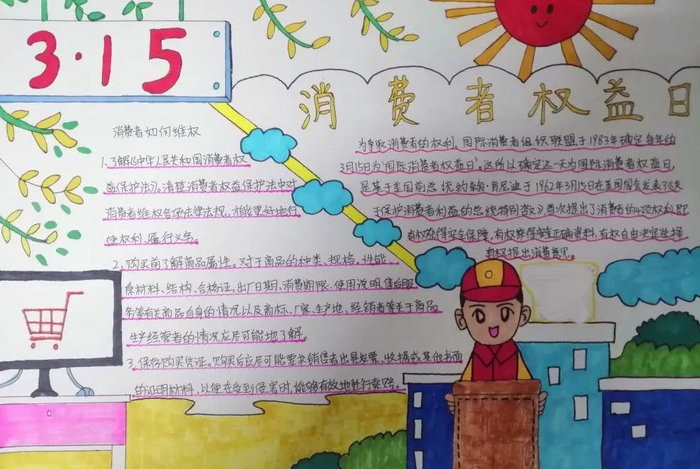 3·15
消费者权益日
消费者如何维权
1、了解《中华人民共和国消费者权
益保护法》。清楚消费者权益保护法中对
消费者维权各项法律法规，才能更好地行
使权利、履行义务。
2、购买前了解商品属性。对于商品的种类、规格、性能、
原材料、结构、合格证、出厂日期、消费期限、使用说明、售后服
务等有关商品自身的情况以及商标、厂家、生产地、经销者等关于商品
生产经营者的情况应尽可能地了解。
3、保存购买凭证。购买后应尽可能要求销售者出具发票、收据或其他书面
的证明材料，以便在受到侵害时，能够有效地进行索赔。
为争取消费者的权利，国际消费者组织联盟于1983年确定每年的
3月15日为"国际消费者权益日"。这所以确定这一天为国际消费者权益日，
是基于美国前总统约翰·肯尼迪于1962年3月15日在美国国会发表《关
于保护消费者利益的总统特别咨文》首次提出了消费者的四项权利，即
有权获得安全保障，有权获得正确资料，有权自由决定选择
有权提出消费意见。